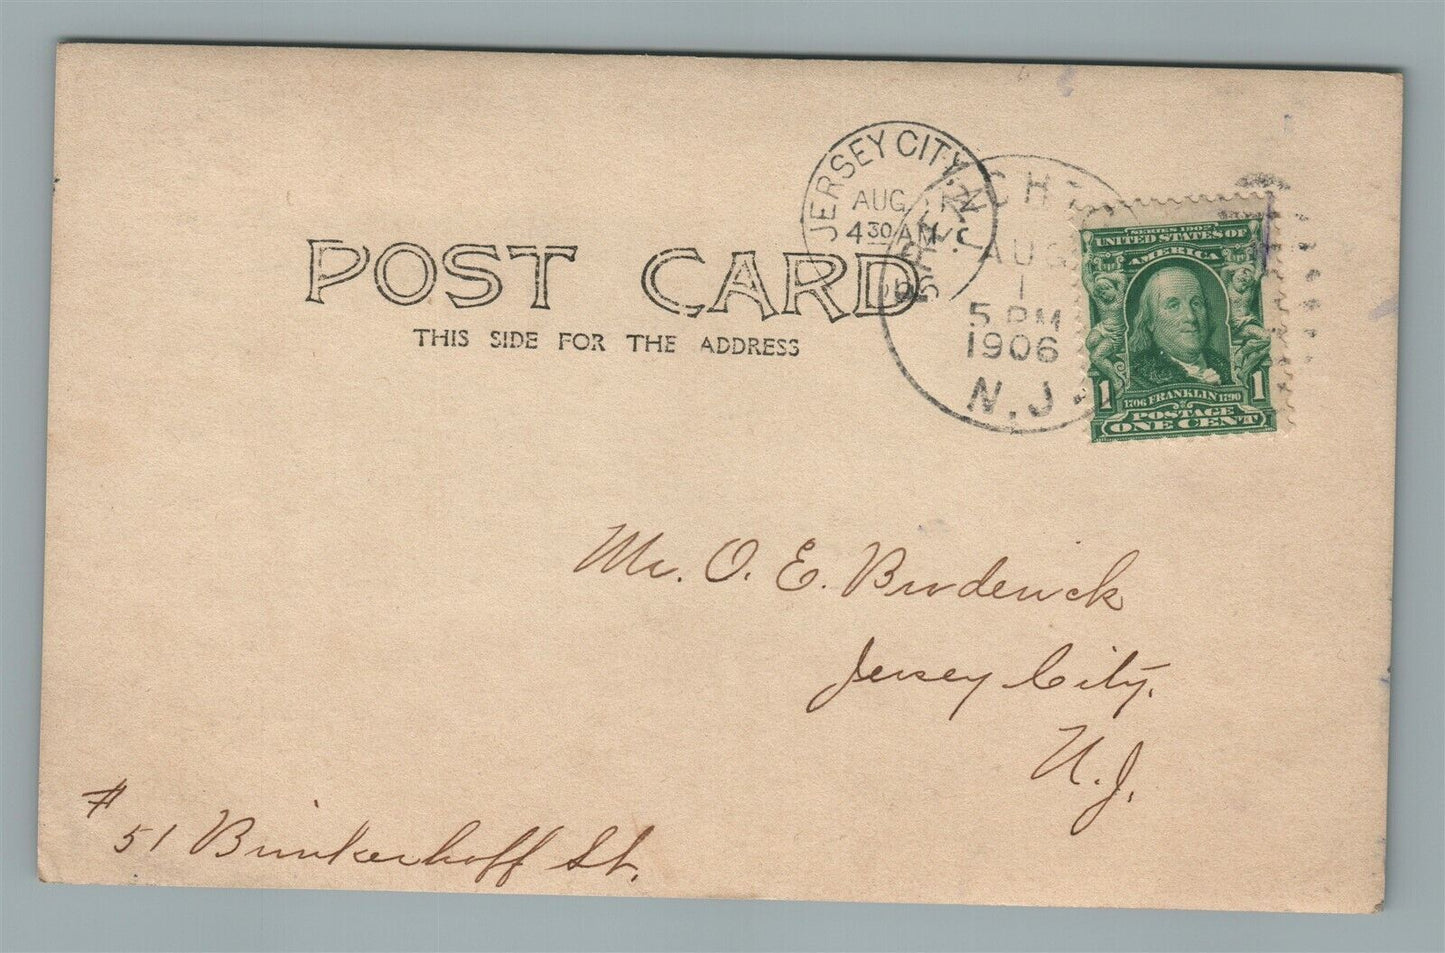 POST CARD
THIS SIDE FOR THE ADDRESS
JERSEY CITY, N.J.
AUG
4 30 AM
AUG
1
5 PM
1906
N.J.
SERIES 1902
UNITED STATES OF
AMERICA
1 1
1706 FRANKLIN 1790
POSTAGE
ONE CENT
Mr. O. E. Broderick
Jersey City.
N. J.
# 51 Brinkerhoff St.